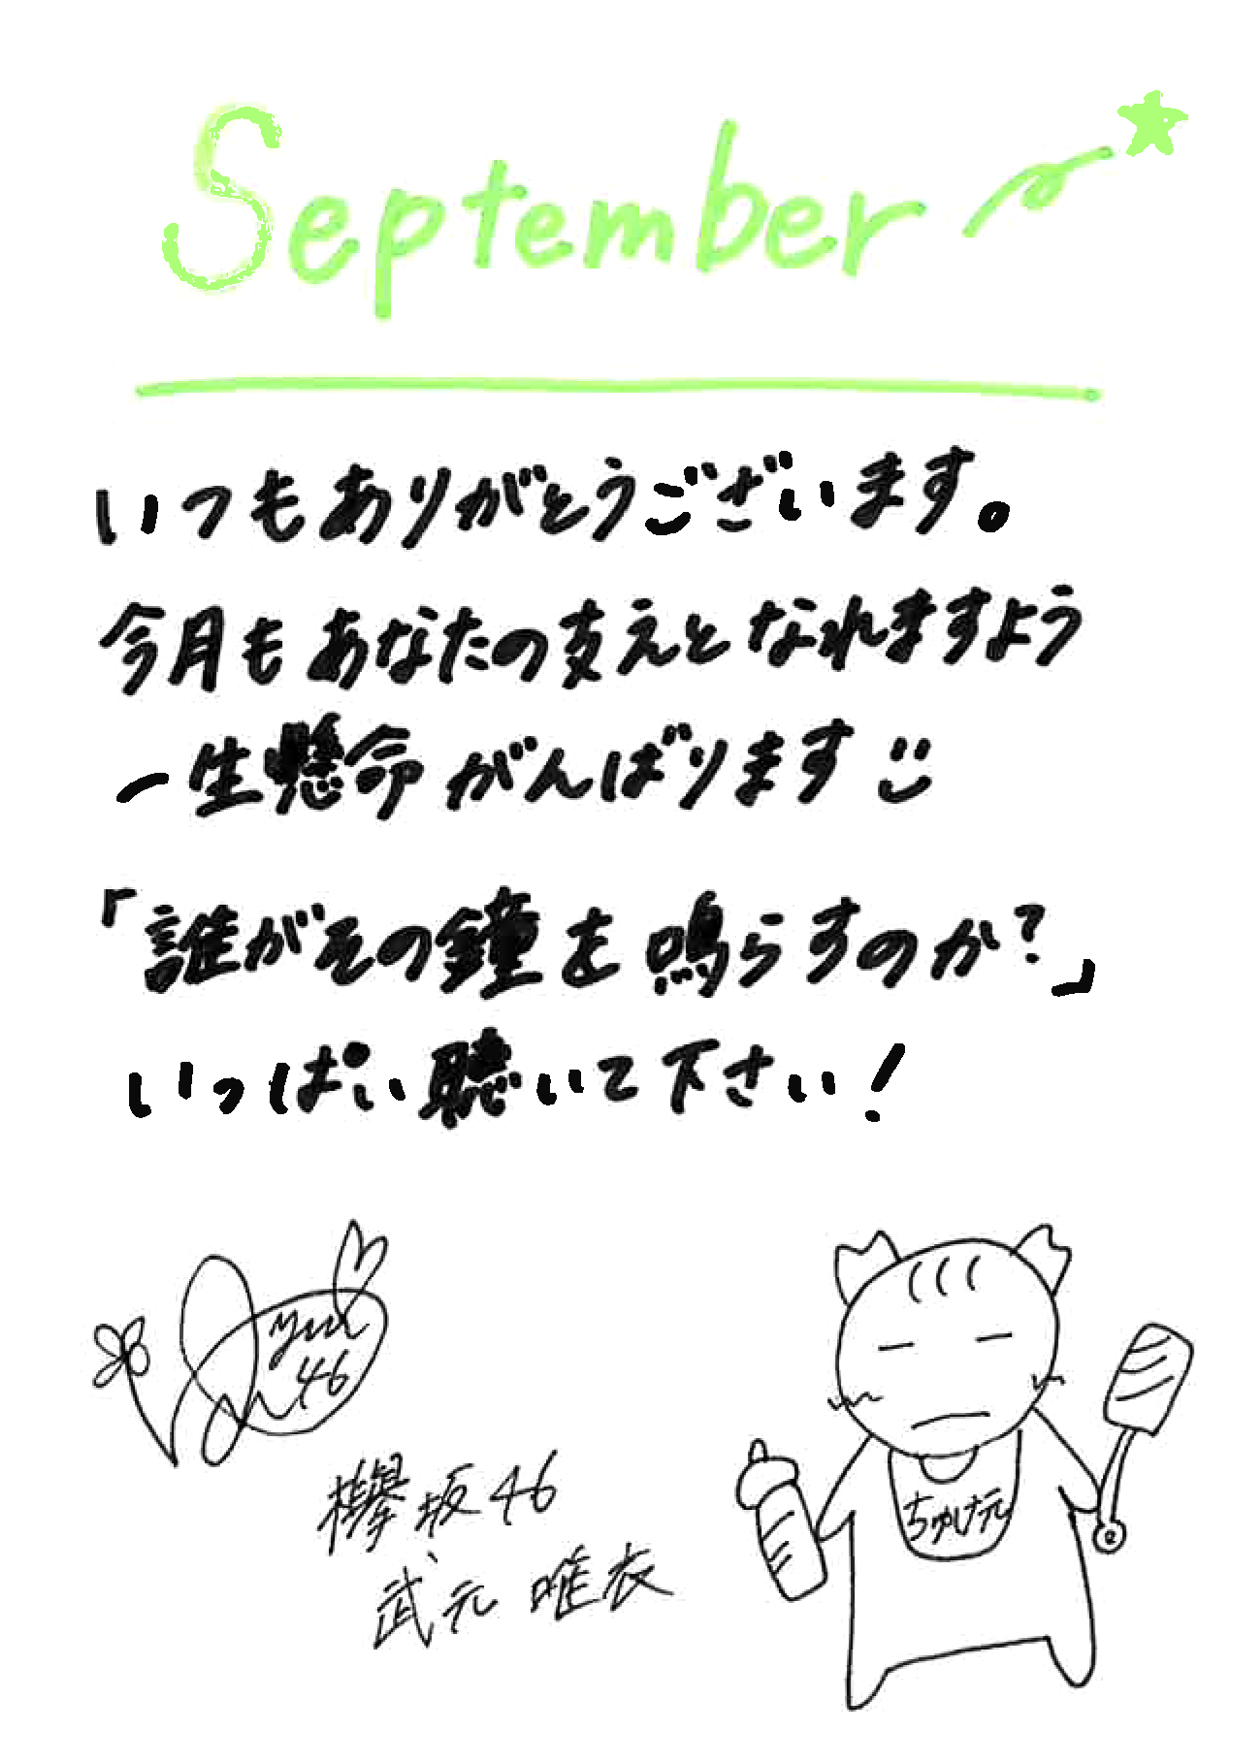 September
いつもありがとうございます。
今月もあなたの支えとなれますよう
一生懸命がんばります
「誰がその鐘を鳴らすのか?」
いっぱい聴いて下さい!
yui
46
欅坂46
武元 唯衣
ちゅけ元